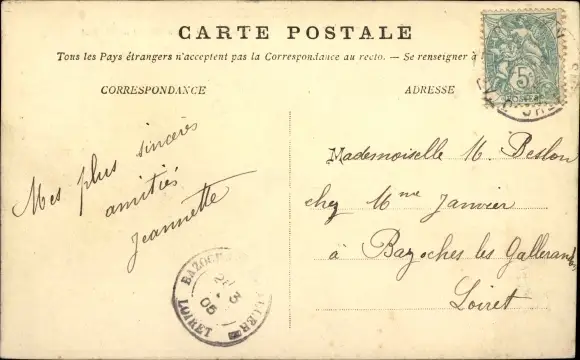 CARTE POSTALE
Tous les Pays étrangers n'acceptent pas la Correspondance au recto. — Se renseigner à
CORRESPONDANCE
ADRESSE
5
POSTES
Mes plus sincères
amitiés
Jeannette
Mademoiselle M. Beslon
chez Mme Janvier
à Bazoches les Gallerandes
Loiret
BAZOC
3
06
LOIRET